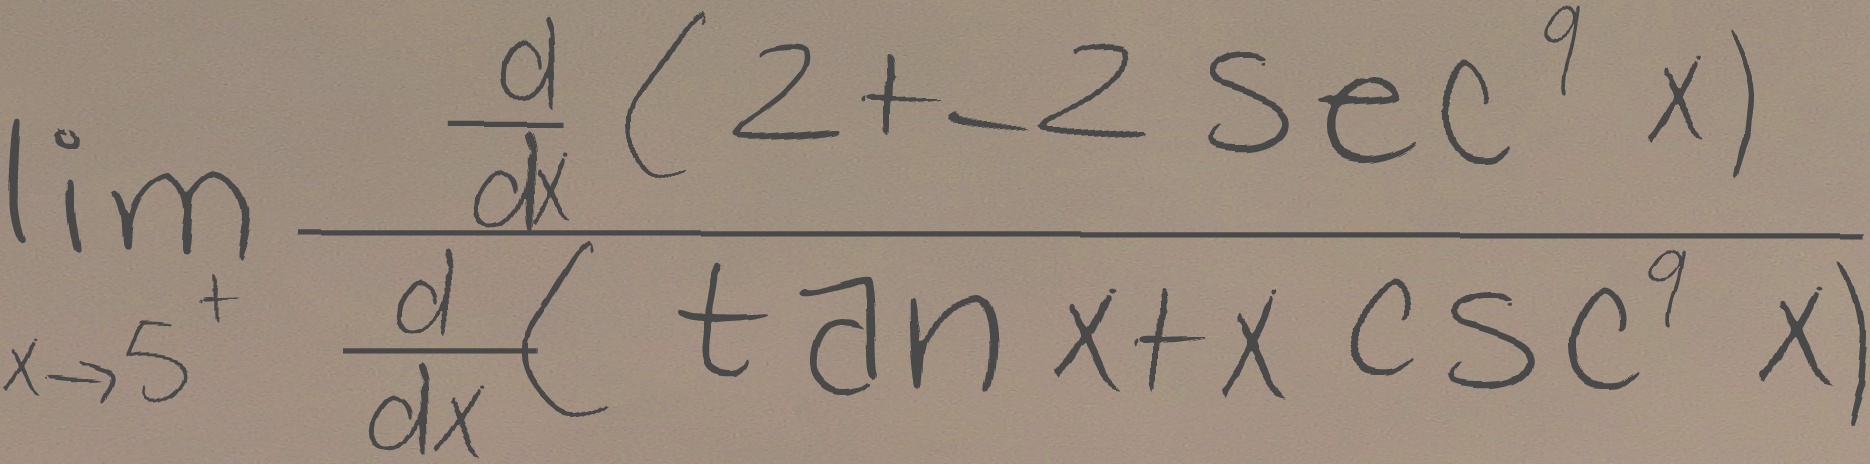 \lim_{x \to 5^+} \frac{\frac{d}{dx}(2+-2\sec^9 x)}{\frac{d}{dx}(\tan x+x\csc^9 x)}